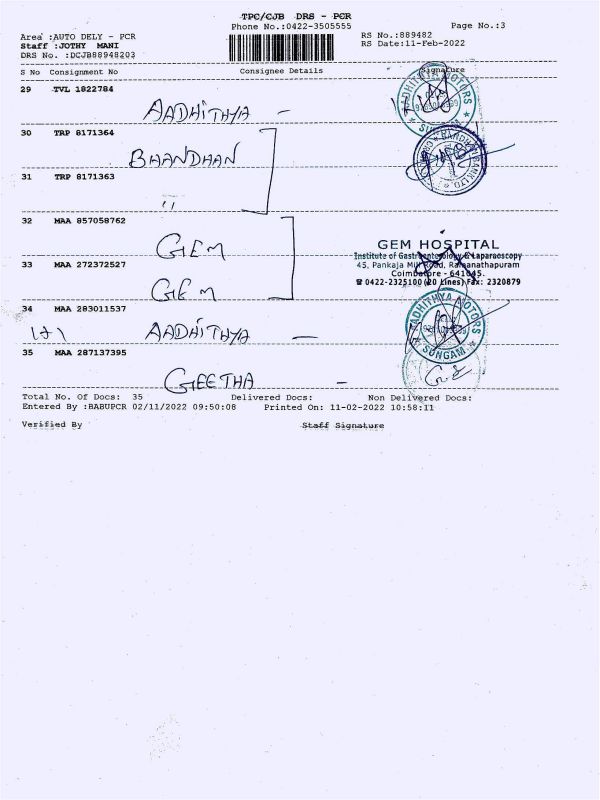 TPC/CJB DRS - PCR
Phone No.:0422-3505555
Page No.:3
Area :AUTO DELY - PCR
RS No.:889482
Staff :JOTHY MANI
RS Date:11-Feb-2022
DRS No. :DCJB88948203
S No Consignment No Consignee Details Signature
29 TVL 1822784
AADHITHYA -
AADHITHYA MOTORS
SUNGAM
30 TRP 8171364
BHANDHAN
31 TRP 8171363
"
32 MAA 857058762
GEM
GEM HOSPITAL
Institute of Gastroenterology & Laparaoscopy
33 MAA 272372527
45, Pankaja Mill Road, Ramanathapuram
Coimbatore - 641045.
☎ 0422-2325100 (20 Lines) Fax: 2320879
GEM
34 MAA 283011537
AADHITHYA -
AADHITHYA MOTORS
SUNGAM
35 MAA 287137395
GEETHA -
Total No. Of Docs: 35 Delivered Docs: Non Delivered Docs:
Entered By :BABUPCR 02/11/2022 09:50:08 Printed On: 11-02-2022 10:58:11
Verified By Staff Signature